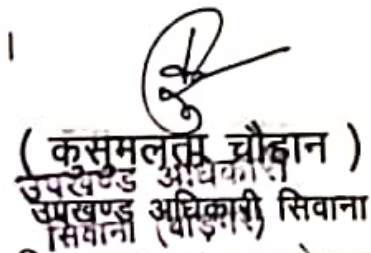 । 
( कुसुमलता चौहान )
उपखण्ड अधिकारी
उपखण्ड अधिकारी सिवाना
सिवाना (बाड़मेर)